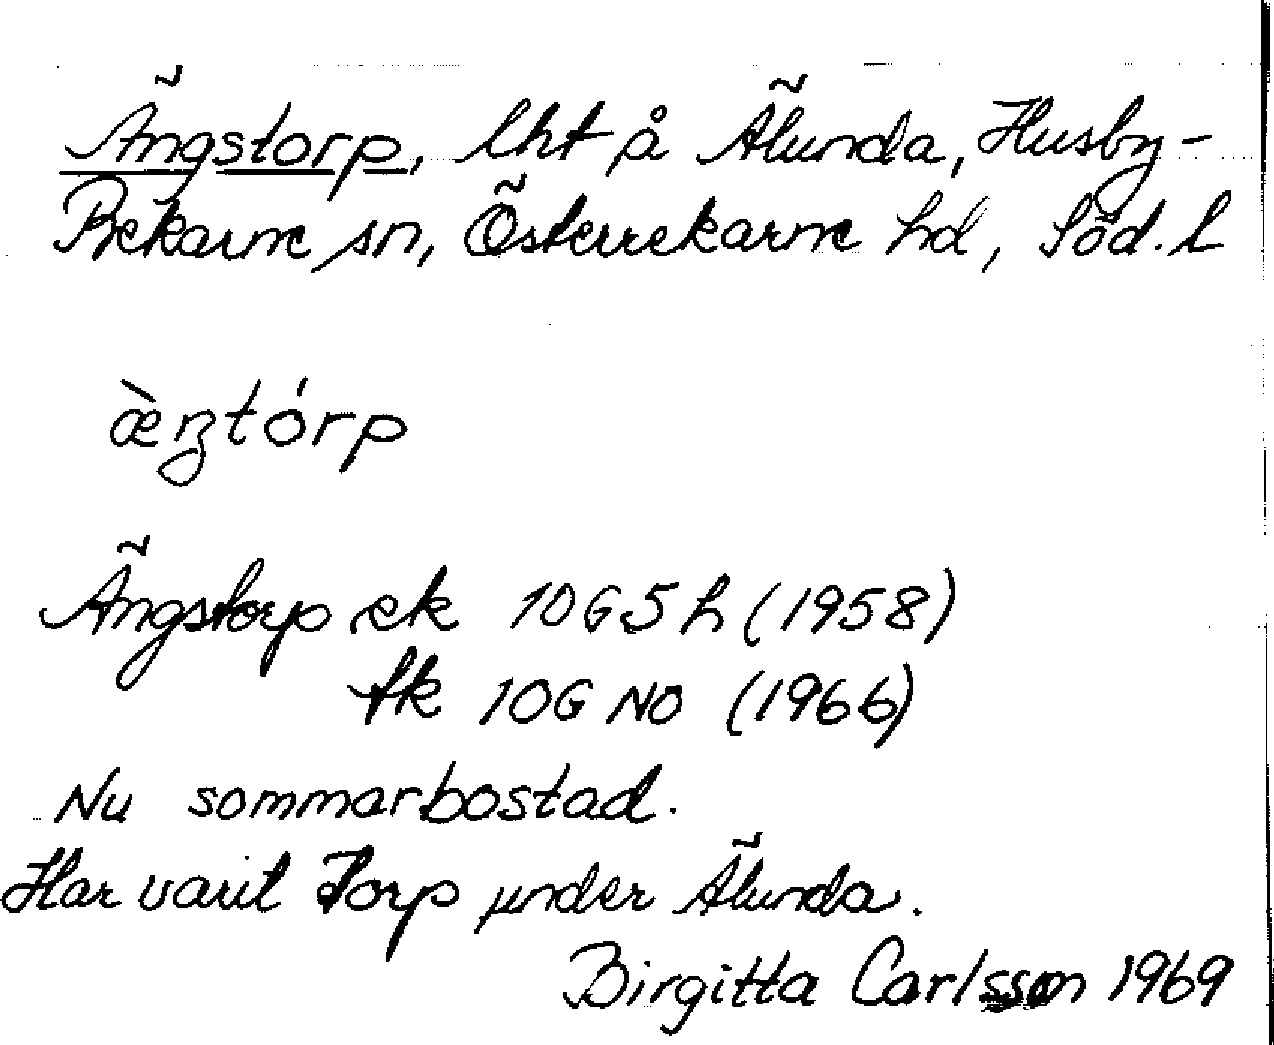 Ängstorp, lht å Älunda, Husby-
Rekarne sn, Österrekarne hd, Söd. l
Ängstorp ek 10G5h (1958)
tk 10G NO (1966)
Nu sommarbostad.
Har varit Torp under Älunda.
Birgitta Carlsson 1969